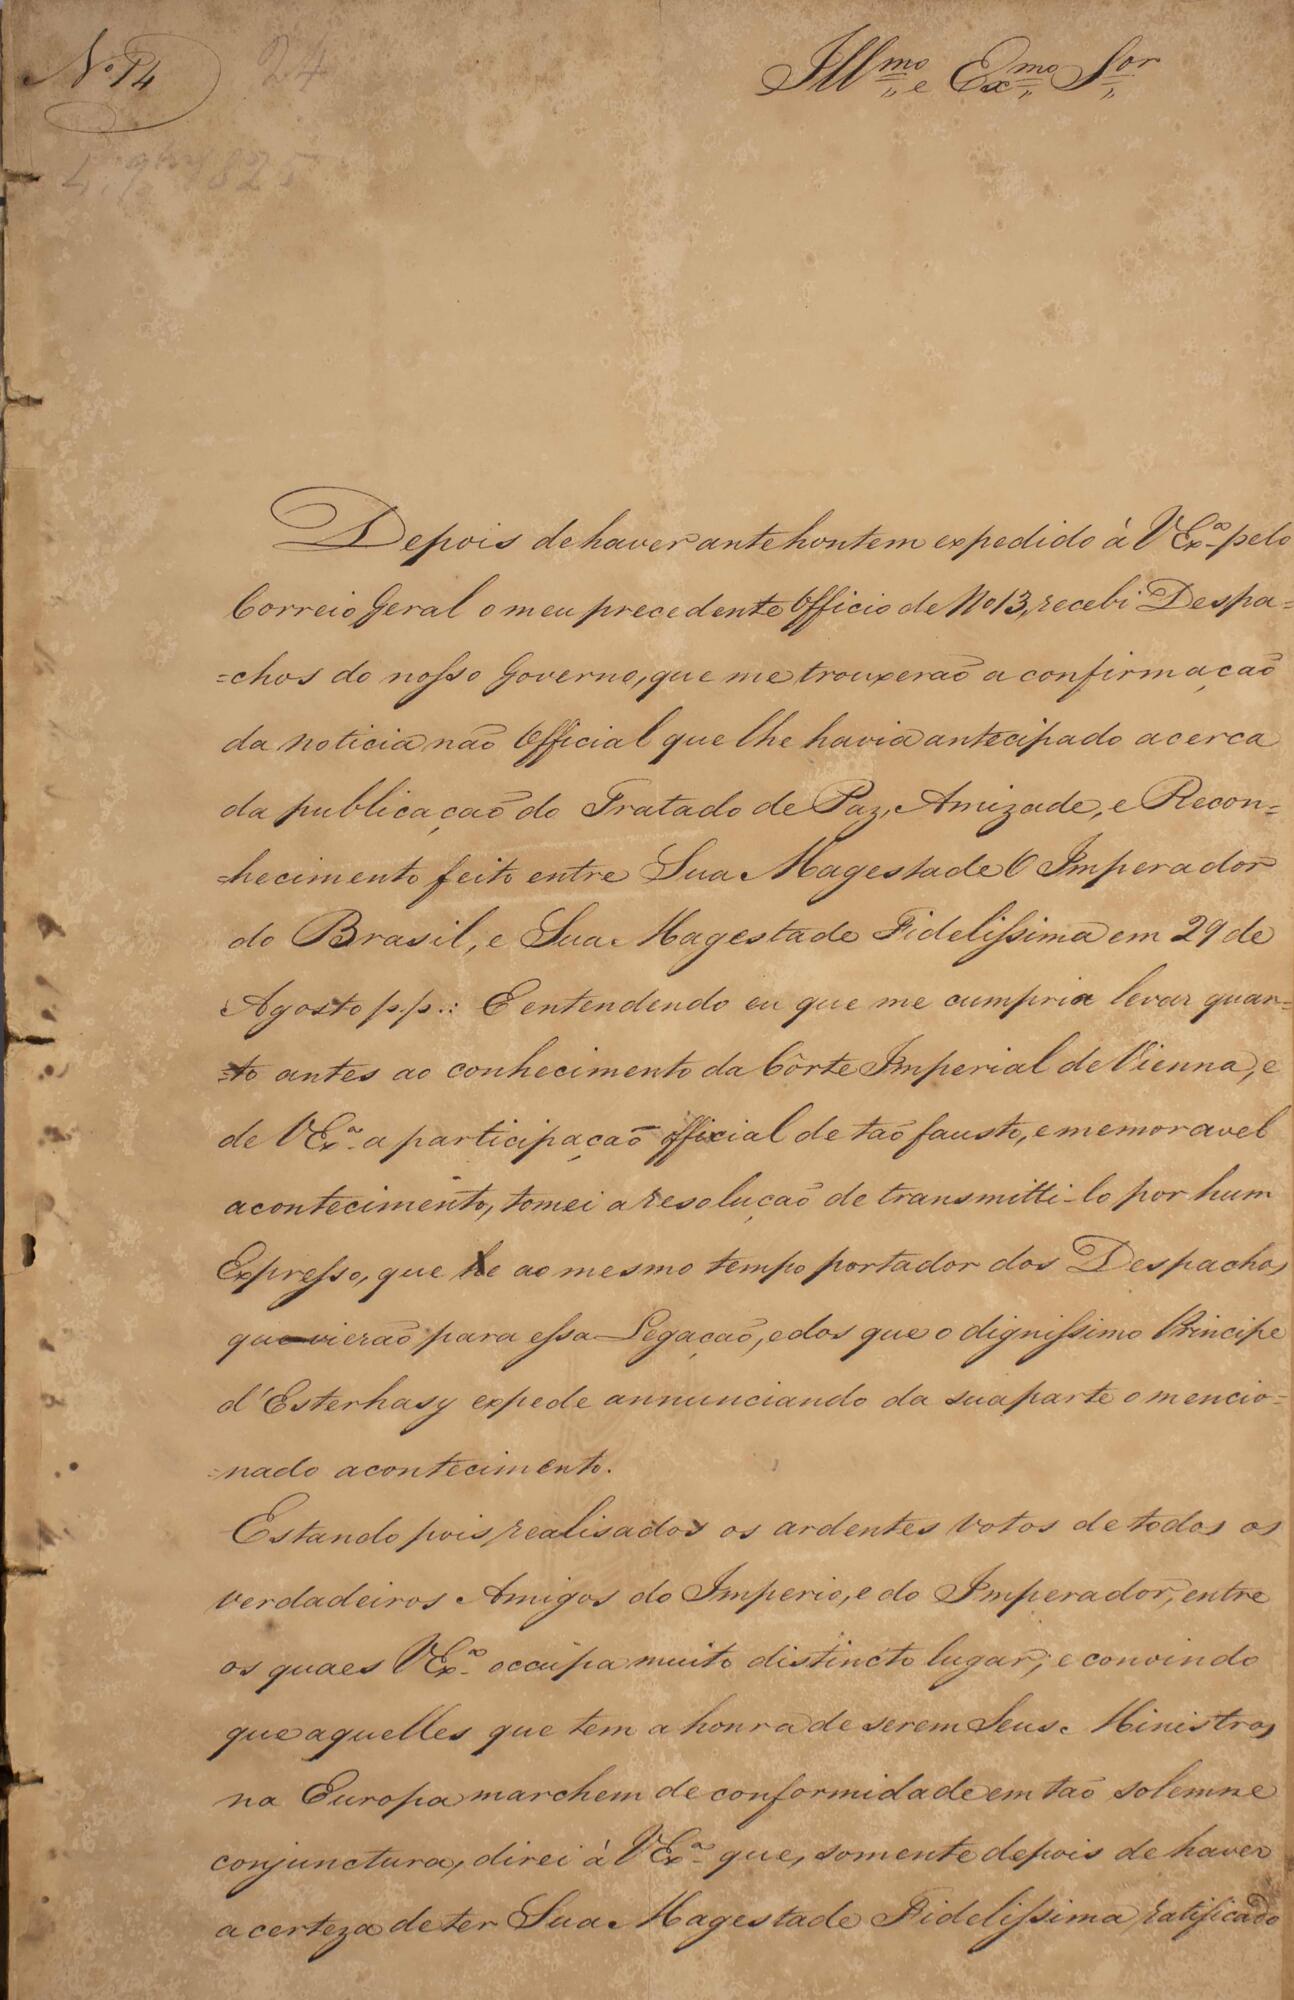 Nº 14
24
Illmo e Exmo Sor
Depois de haver antehontem expedido à V Exª pelo
Correio Geral o meu precedente Officio de Nº 13, recebi Despa=
=chos do nosso Governo, que me trouxeraõ a confirmaçaõ
da noticia naõ Official que lhe havia antecipado acerca
da publicaçaõ do Tratado de Paz, Amizade, e Recon=
=hecimento feito entre Sua Magestade O Imperador
do Brasil, e Sua Magestade Fidelissima em 29 de
Agosto p.p.: E entendendo eu que me cumpria levar quan=
=to antes ao conhecimento da Côrte Imperial de Vienna, e
de V Exª a participaçaõ official de taõ fausto, e memoravel
acontecimento, tomei a resoluçaõ de transmitti-lo por hum
Expresso, que he ao mesmo tempo portador dos Despachos,
que vieraõ para essa Legaçaõ, e dos que o dignissimo Principe
d'Esterhasy expede annunciando da sua parte o mencio=
=nado acontecimento.
Estando pois realisados os ardentes votos de todos os
verdadeiros Amigos do Imperio, e do Imperador, entre
os quaes V Exª occupa muito distincto lugar; e convindo
que aquelles que tem a honra de serem Seus Ministros
na Europa marchem de conformidade em taõ solemne
conjunctura, direi à V Exª que, somente depois de haver
a certeza de ter Sua Magestade Fidelissima ratificado